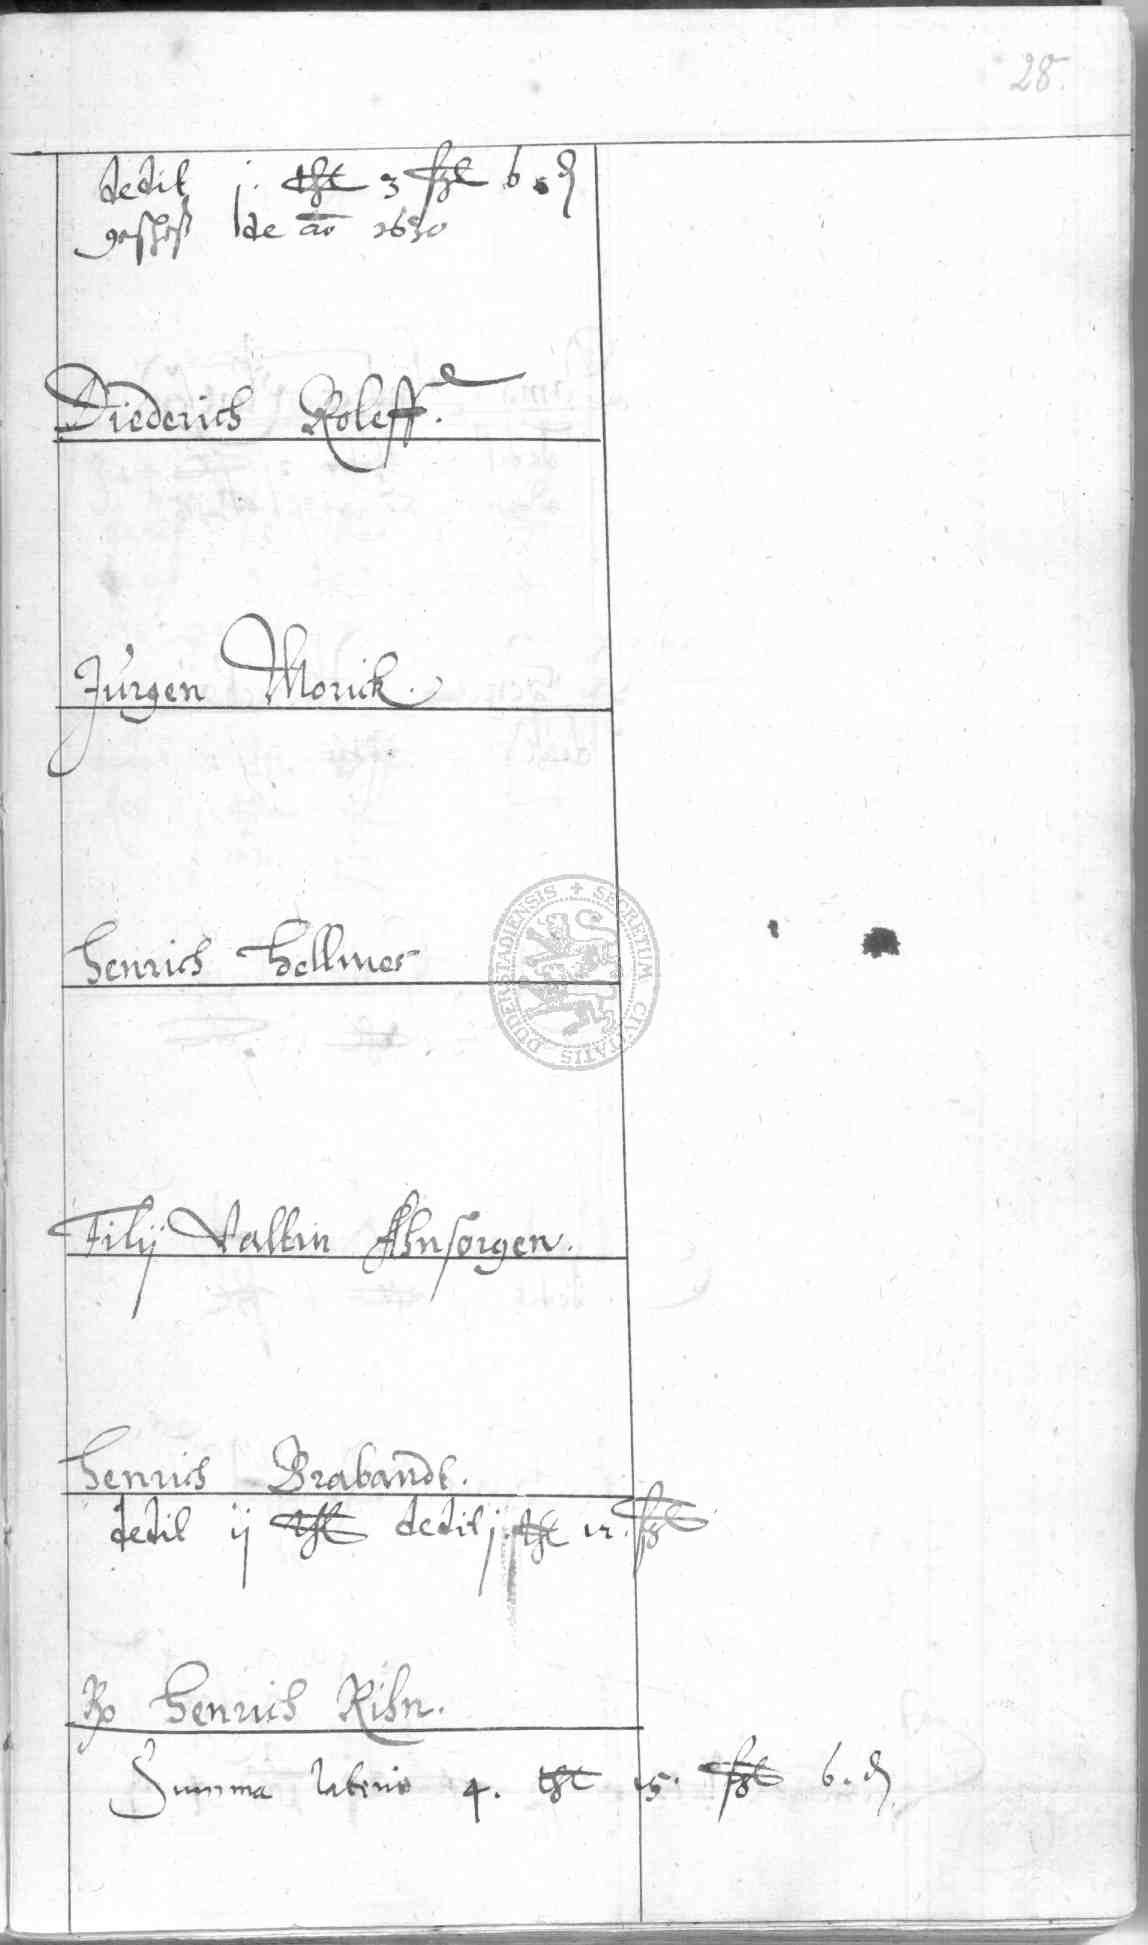 28.
dedit j. thl 3 ßl 6 ₰
geschoß de ao 1630
Diederich Roleff.
Jürgen Morick.
Henrich Hellmer
Filij Valtin Ahnsorgen.
Henrich Brabandt.
dedit ij thl dedit j. thl 12. ßl
Henrich Rihn.
Summa lateris 4. thl 15. ßl 6. ₰
SECRETUM CIVITATIS DUDERSTADIENSIS